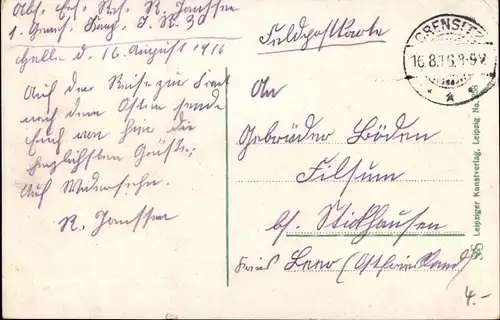 Abs. Ers. Res. R. Janssen
1. Komp. J. R. 30
Halle d. 16. August 1916
Auf der Reise zur Front
nach dem Osten sende
Euch von hier die
herzlichsten Grüße,
Auf Wiedersehn.
R. Janssen
Feldpostkarte
CRENSITZ
16.8.16.8-9V.
An
Gebrüder Böden
Filsum
bs. Stickhausen
Kreis Leer (Ostfriesland)
Leipziger Kunstverlag, Leipzig No.
4.-